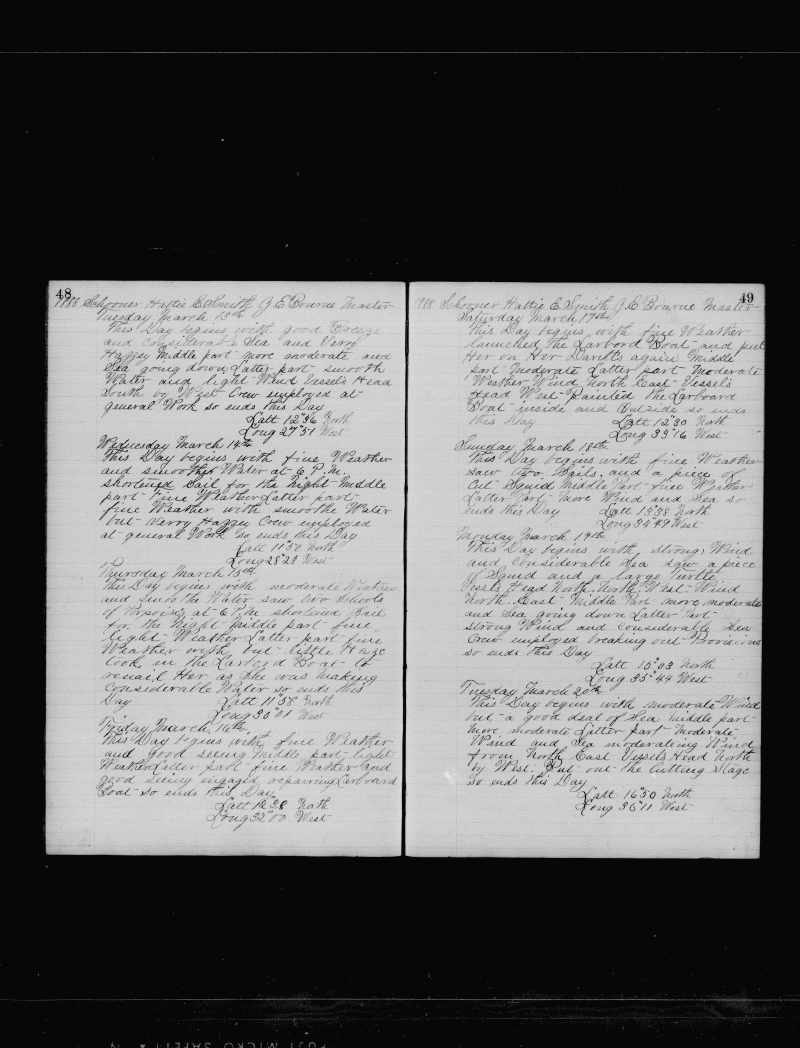 48
1888 Schooner Hattie E Smith J E Bourne Master
Tuesday March 13th
This Day begins with good Breeze
and considerable Sea and Verry
Hazzey Middle part more moderate and
Sea going down Latter part smooth
Water and light Wind Vessels Head
South by West Crew employed at
general Work so ends this Day
Latt 12"36 North
Long 27"51 West
Wednesday March 14th
This Day begins with fine Weather
and smoothe Water at 6 P.M.
shortened Sail for the Night Middle
part fine Weather Latter part
fine Weather with smoothe Water
but Verry Hazzy Crew employed
at general Work so ends his Day
Latt 11"50 North
Long 28"23 West
Thursday March 15th
This Day begins with moderate Weather
and smoothe Water saw two Schools
of Porpoise at 6 P.M shortened Sail
for the Night Middle part fine
light Weather Latter part fine
Weather with but little Haze
took in the Larbord Boat to
renail Her as she was making
considerable Water so ends this
Day Latt 11"58 North
Long 30"01 West
Friday March 16th
This Day begins with fine Weather
and good seeing Middle part light
Weather Latter part fine Weather and
good seeing engaged repairing Larboard
Boat so ends this Day
Latt 12"38 North
Long 32"00 West
49
1888 Schooner Hattie E Smith J E Bourne Master
Saturday March 17th
This Day begins with fine Weather
launched the Larbord Boat and put
Her on Her Davitts again Middle
part Moderate Latter part Moderate
Weather Wind North East Vessels
Head West Painted the Larboard
Boat inside and Outside so ends
this Day Latt 12"30 North
Long 33"16 West
Sunday March 18th
This Day begins with fine Weather
saw two Sails and a piece of
Cut Squid Middle Part fine Weather
Latter Part More Wind and Sea so
ends this Day Latt 13"38 North
Long 34"49 West
Monday March 19th
This Day begins with strong Wind
and considerable Sea saw a piece
of Squid and a large Turtle
Vessls Head North North West Wind
North East Middle Part more moderate
and Sea going down Latter Part
strong Wind and considerable Sea
Crew employed breaking out Provisions
so ends this Day
Latt 15"03 North
Long 35"44 West
Tuesday March 20th
This Day begins with moderate Wind
but a good deal of Sea Middle part
more moderate Latter part Moderate
Wind and Sea moderating Wind
from North East Vessels Head North
by West Put out the Cutting Stage
so ends this Day
Latt 16"50 North
Long 36"11 West